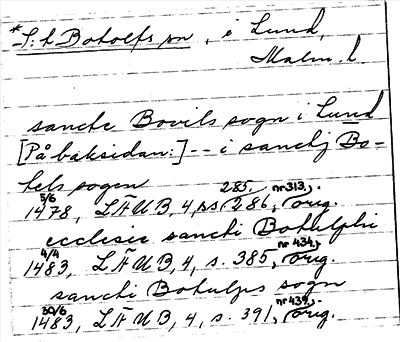 *S:t Botolfs sn, i Lund,
Malm. l.
sancte Bovils sogn i Lund
[På baksidan:] -- i sanctj Bo-
tels sogen
285.
5/6 1478, LÄUB, 4, ss 286, nr 313, orig.
ecclesie sancti Botulphi
4/4 1483, LÄUB, 4, s. 385, nr 434, orig.
sancti Botulps sogn
30/6 1483, LÄUB, 4, s. 391, nr 439, orig.